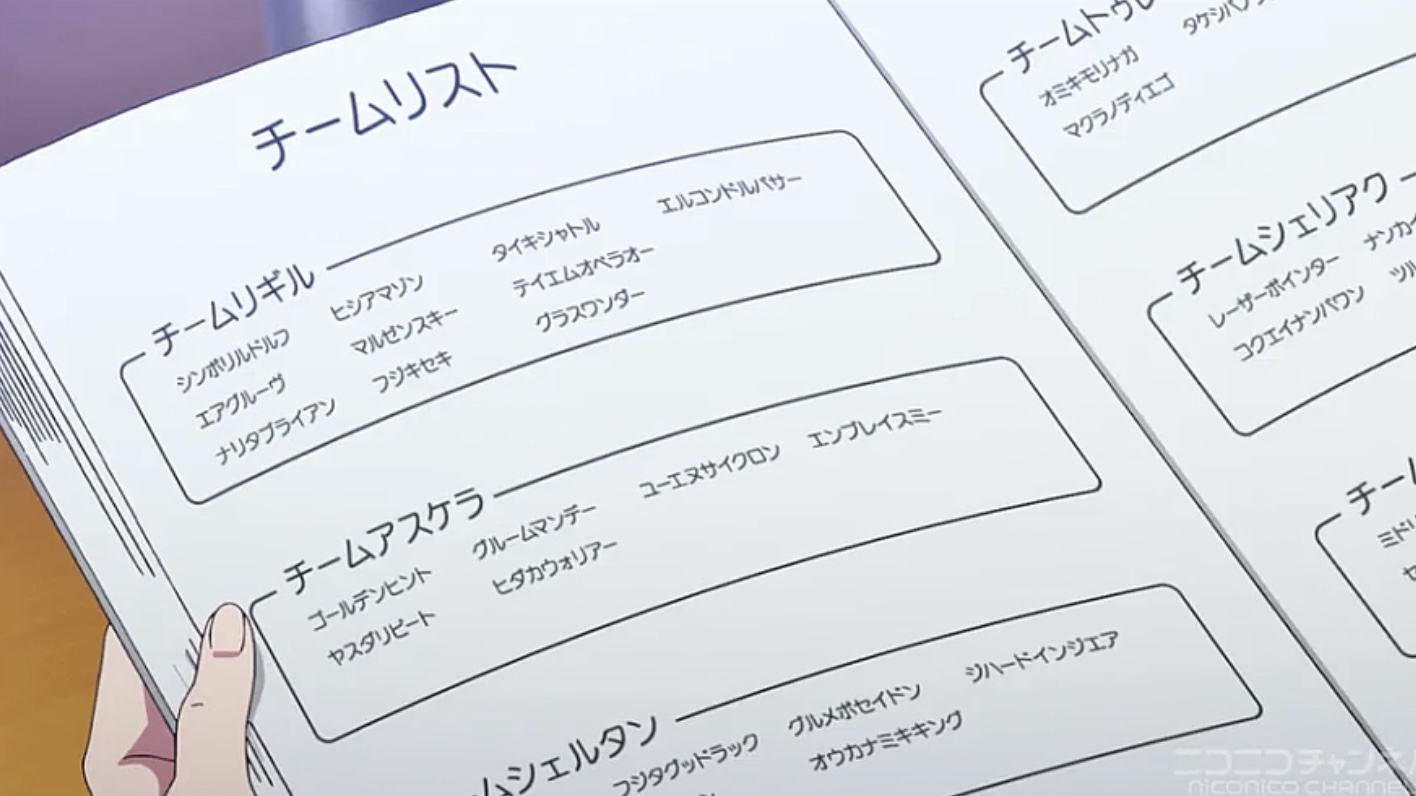 チームリスト
チームリギル
シンボリルドルフ
エアグルーヴ
ナリタブライアン
ヒシアマゾン
マルゼンスキー
フジキセキ
タイキシャトル
テイエムオペラオー
グラスワンダー
エルコンドルパサー
チームアスケラ
ゴールデンヒント
ヤスダリピート
グルームマンデー
ヒダカウォリアー
ユーエヌサイクロン
エンブレイスミー
ムシェルタン
フジタグッドラック
グルメポセイドン
オウカナミキキング
ジハードインジエア
チームトゥレ
オミキモリナガ
マクラノディエゴ
タケシバ
チームシェリアク
レーザーポインター
コクエイナンパワン
ナンカイ
ツル
チーム
ミドリ
ニコニコチャンネル
niconico CHANNEL